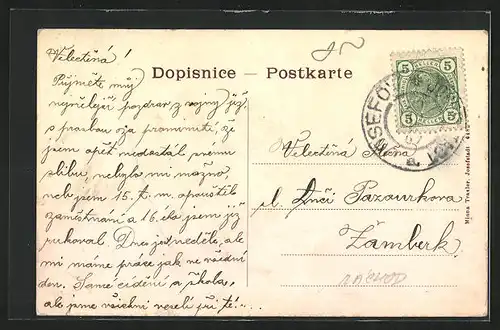 Velectěná!
Přijměte můj
nejvřelejší pozdrav z vojny již
s prosbou za prominutí, že
jsem opět nedostál svému
slibu, nebylo mi možno,
neb jsem 15. t. m. opouštěl
zaměstnání a 16. jsem již
rukoval. Dnes je neděle, ale
mi máme práce jak ve všední
den. Samé cídění a škola,
ale jsme všichni veselí při té...
Dopisnice – Postkarte
5 5
5 5
JOSEFOV
Velectěná slečna
sl. Anči Pazourkova
Žamberk
NÁCHOD
Minna Traxler, Josefstadt